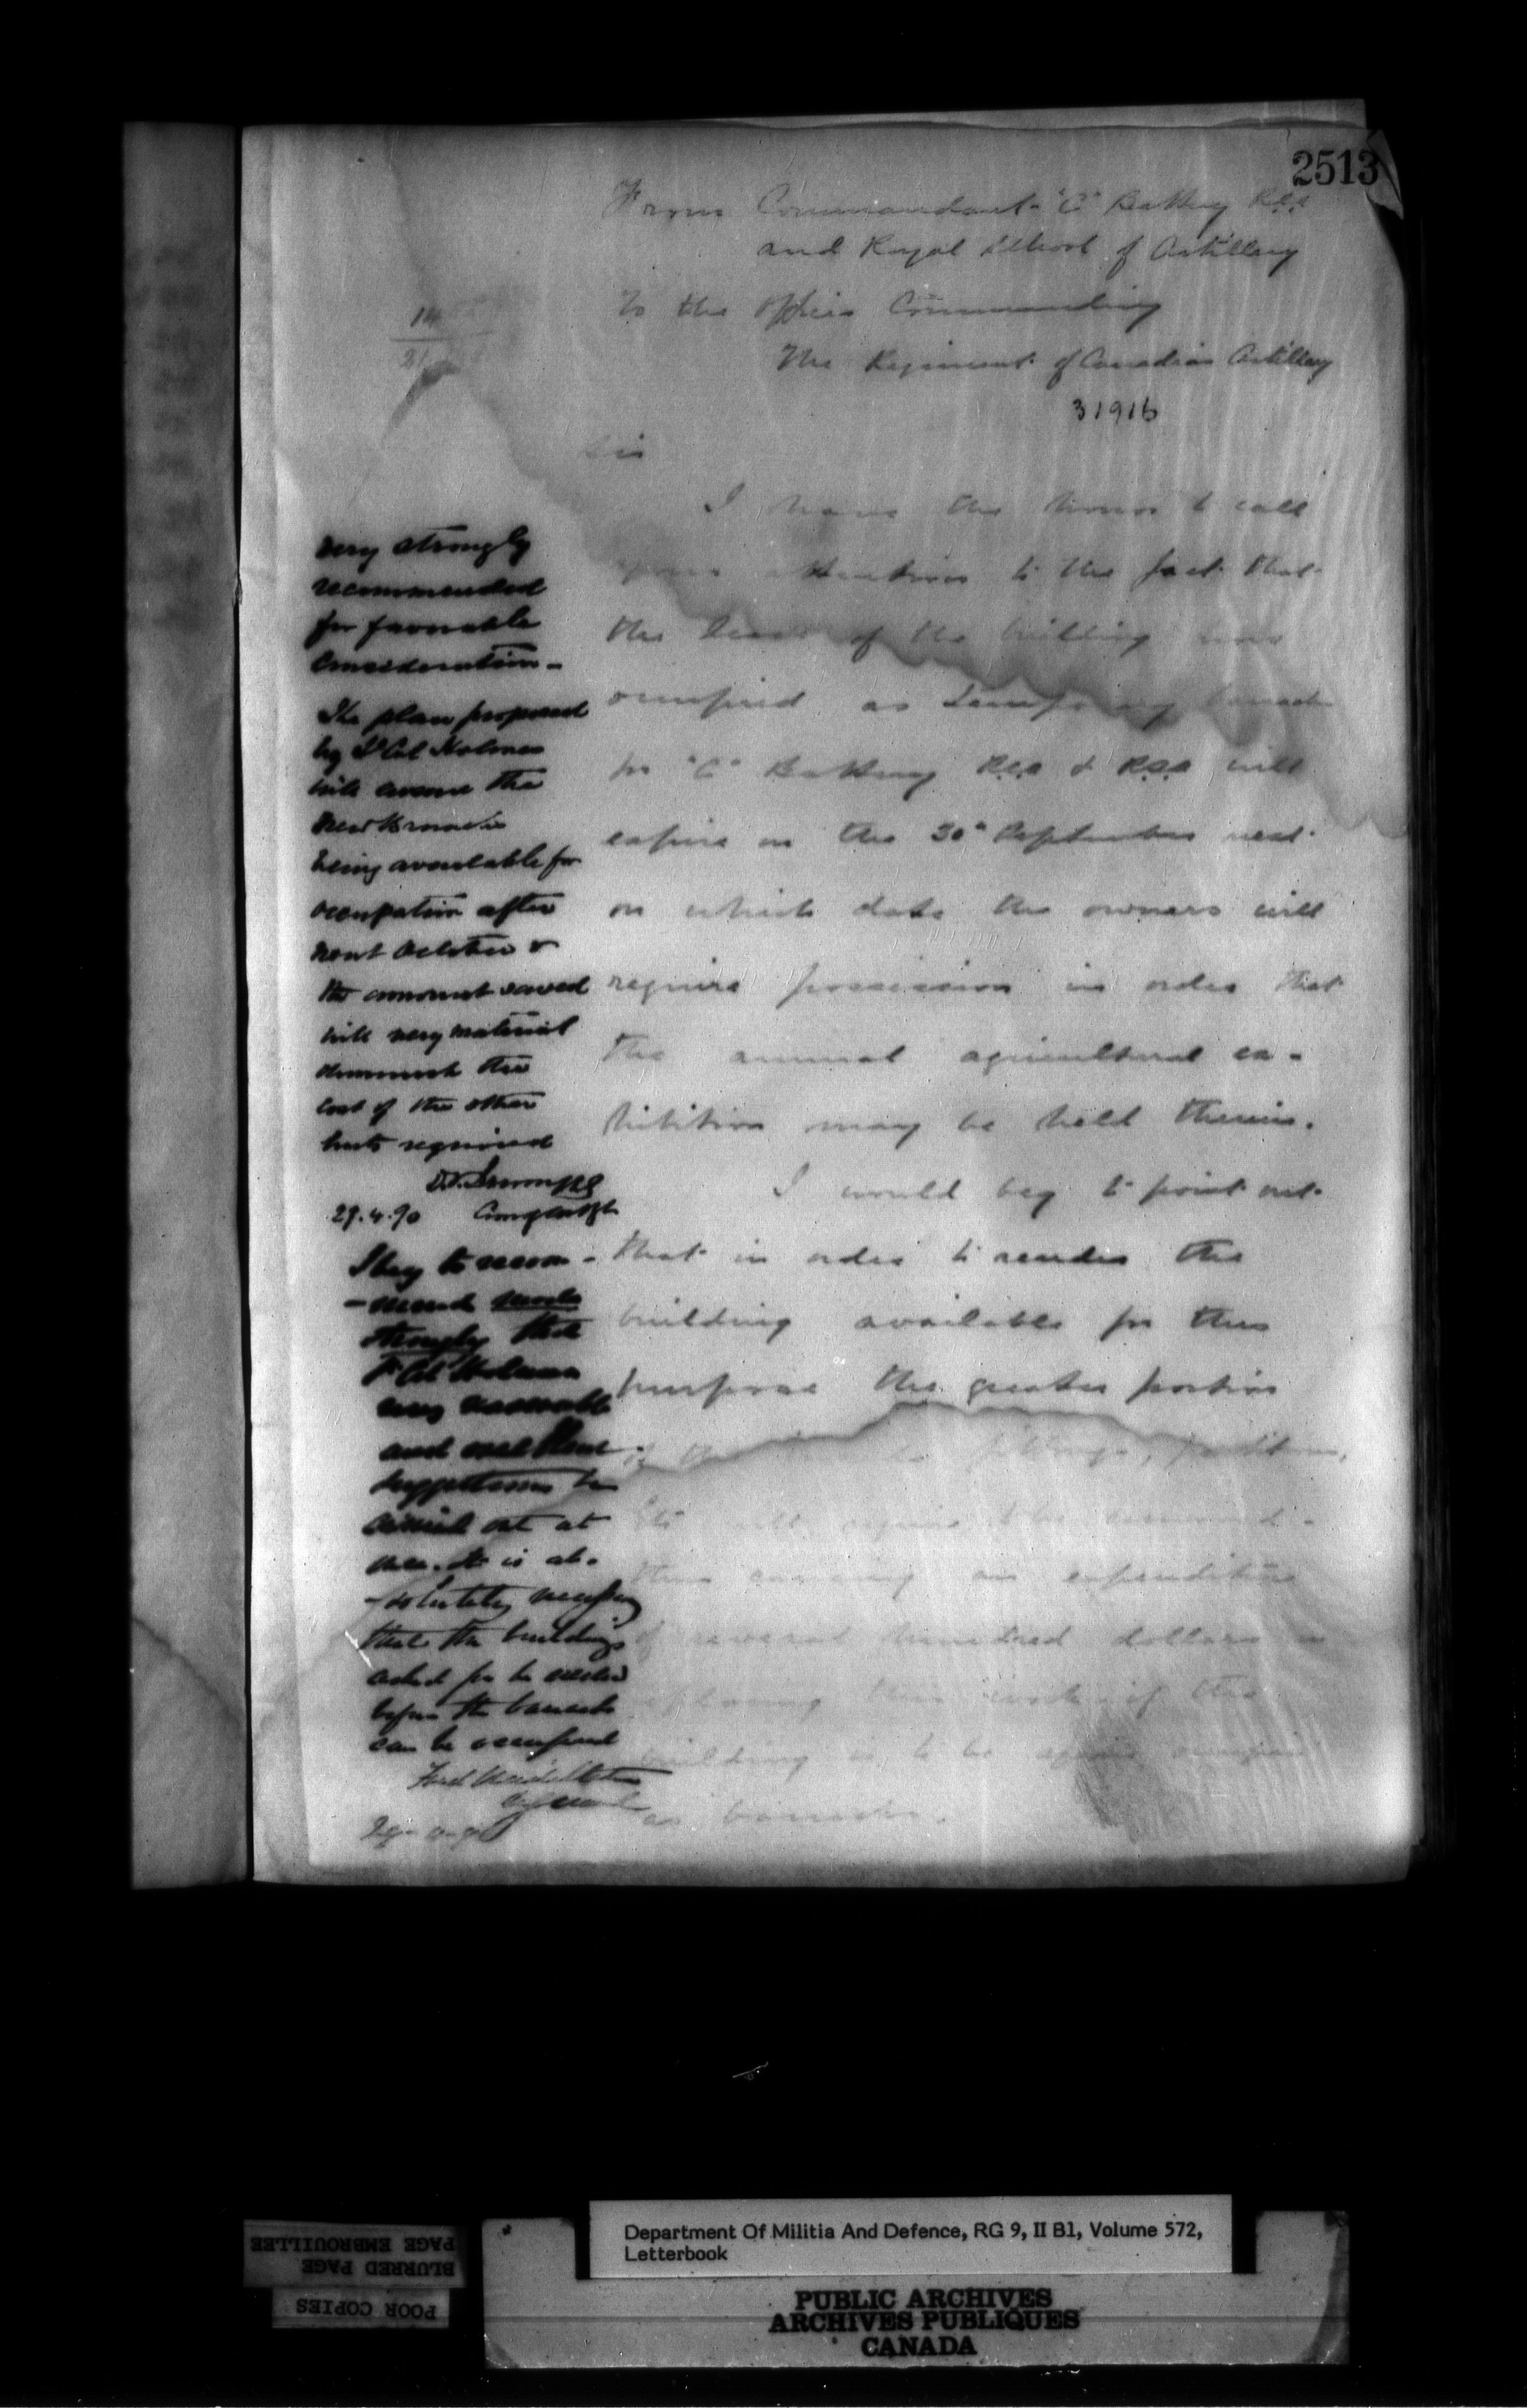 2513
From Commandant "C" Battery RCA
and Royal School of Artillery
To the Officer Commanding
The Regiment of Canadian Artillery
31916
14
Sir
I have the honor to call
your attention to the fact that
the lease of the building now
occupied as temporary barracks
for "C" Battery RCA & RSA will
expire on the 30th September next
on which date the owners will
require possession in order that
the annual agricultural ex-
hibition may be held therein.
I would beg to point out
that in order to render the
building available for this
purpose the greater portion
of the fittings, partitions,
etc will require to be removed -
thus causing an expenditure
of several hundred dollars in
replacing this work if the
building is to be again occupied
as barracks.
Very strongly
recommended
for favorable
consideration -
The plan proposed
by Lt Col Holmes
will the
new Barracks
being available for
occupation after
next October &
the amount saved
will very material
diminish the
cost of the other
huts required
29.4.90
I beg to recom-
-mend most
strongly that
Lt Col Holmes
very reasonable
and
suggestions be
carried out at
once. It is ab-
-solutely necessary
that the buildings
asked for be erected
before the barracks
can be occupied
Fred Middleton
Department Of Militia And Defence, RG 9, II B1, Volume 572,
Letterbook
PUBLIC ARCHIVES
ARCHIVES PUBLIQUES
CANADA
PAGE EMBROUILLEE
BLURRED PAGE
POOR COPIES